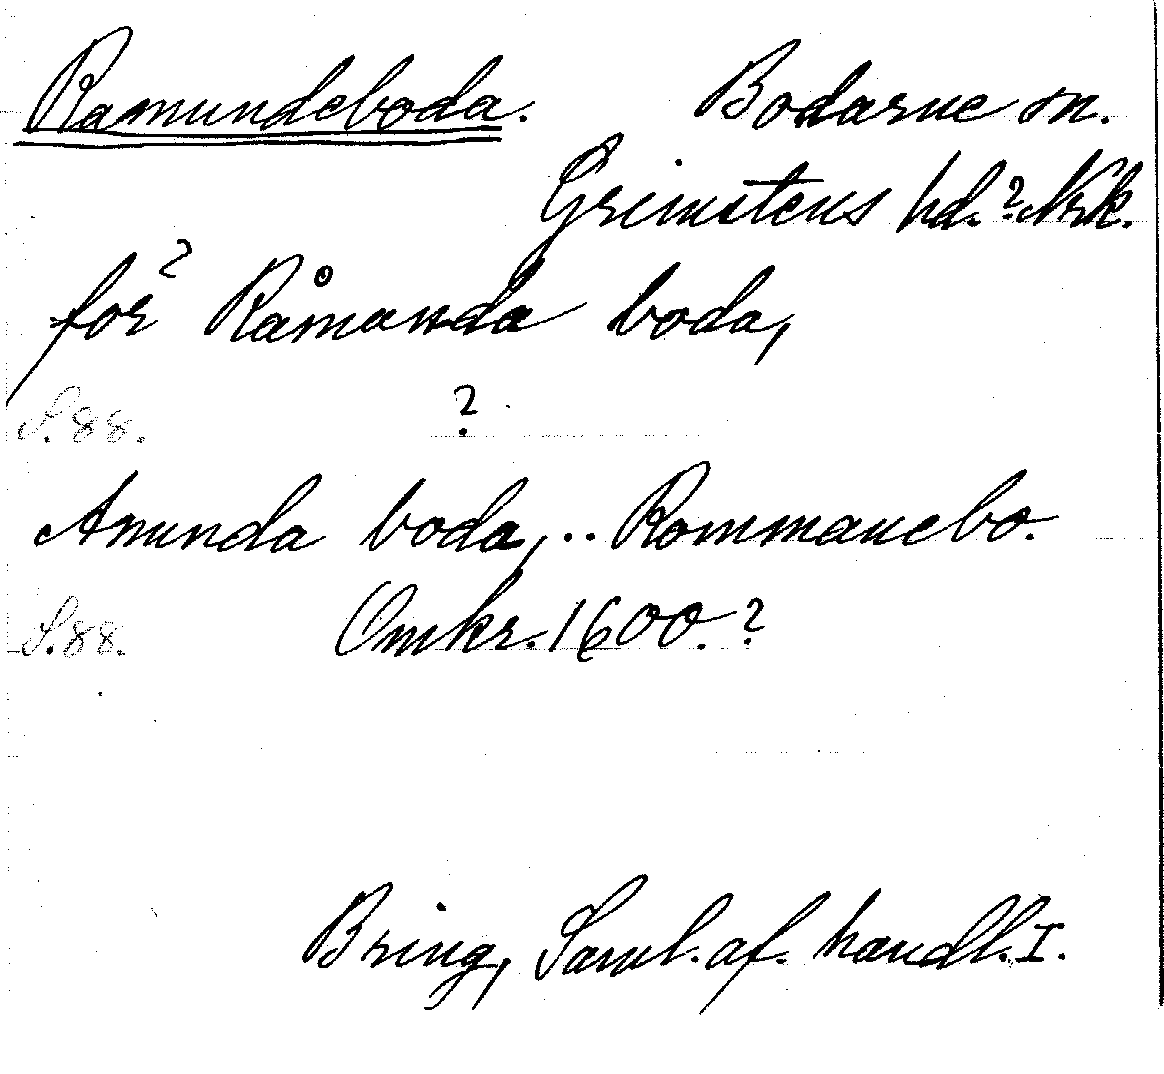 Ramundeboda. Bodarne sn.
Grimstens hd.? Nrk.
for? Råmanda boda,
S. 88. ?
Anunda boda, .. Rommanebo.
S. 88. Omkr. 1600. ?
Bring, Saml. af. handl. I.